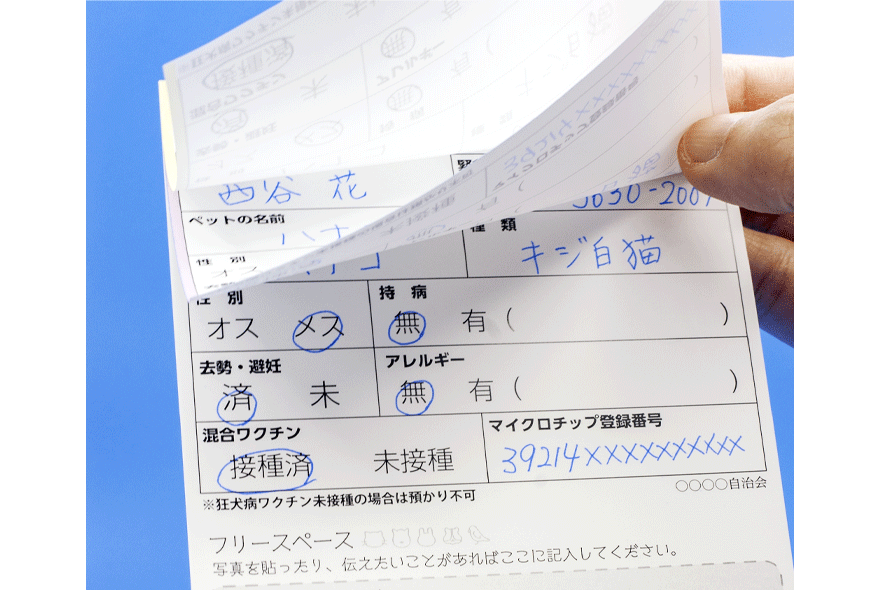 西谷 花
ペットの名前
種 類
キジ白猫
性 別
オス メス
持 病
無 有 ( )
去勢・避妊
済 未
アレルギー
無 有 ( )
混合ワクチン
接種済 未接種
マイクロチップ登録番号
39214××××××××××
※狂犬病ワクチン未接種の場合は預かり不可
○○○○自治会
フリースペース
写真を貼ったり、伝えたいことがあればここに記入してください。